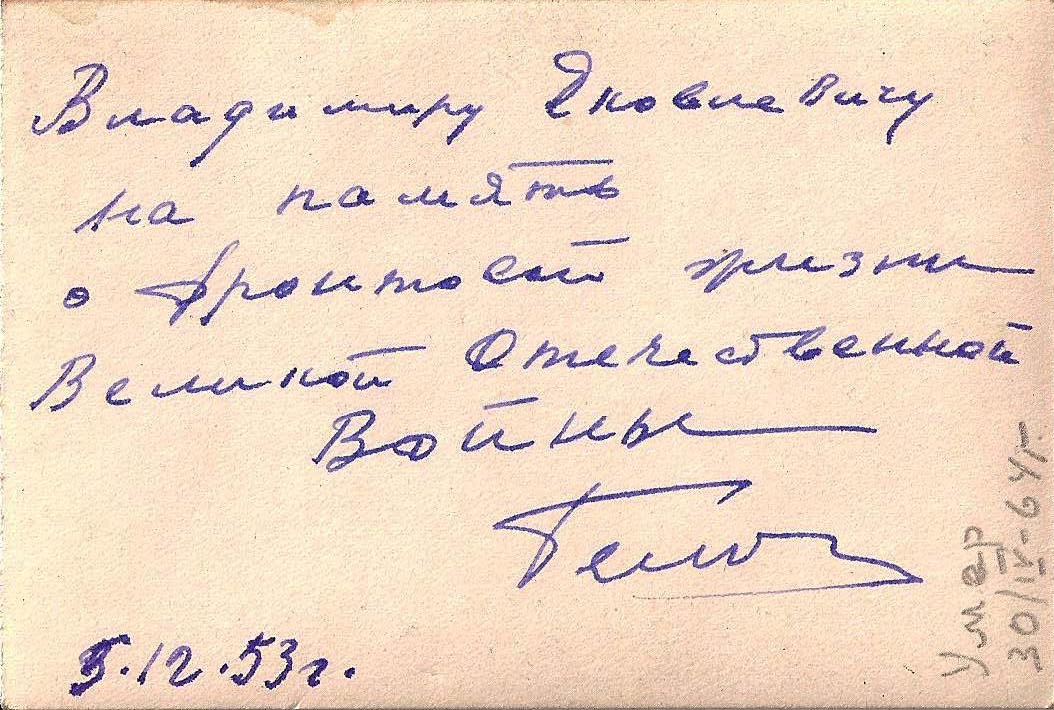 Владимиру Яковлевичу
на память
о фронтовой жизни
Великой Отечественной
Войны
5.12.53г.
Умер
30/IV-64г.